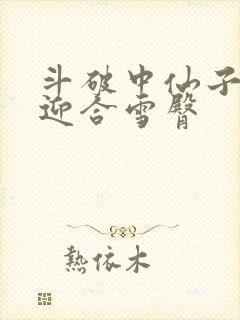 斗破中仙子
迎合雪臀
熱依木